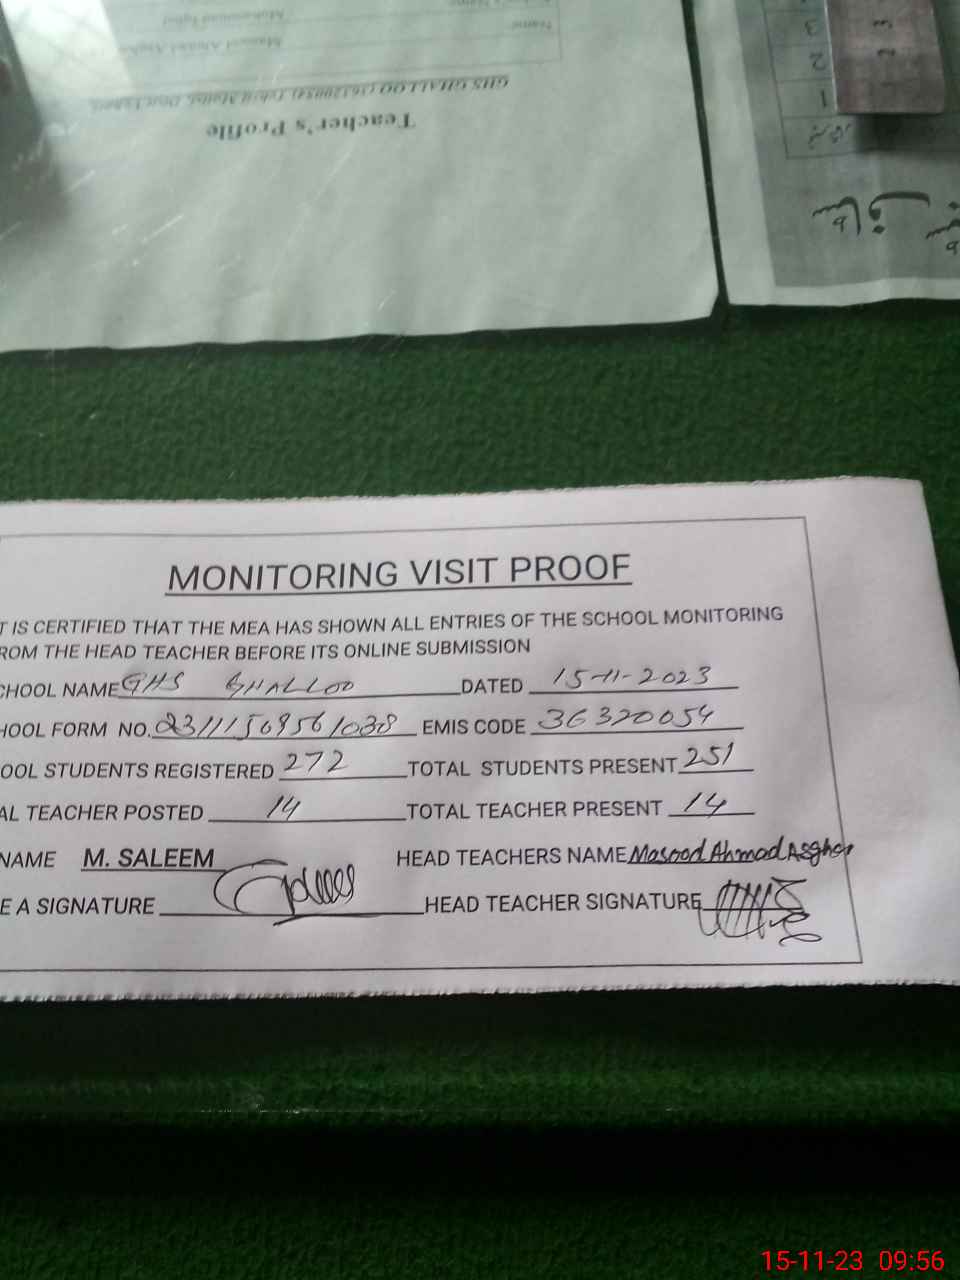 Name
Masood Ahmad Asghar
Muhammad Iqbal
GHS GHALLOO (36320054)
Teacher's Profile
3
2
1
MONITORING VISIT PROOF
T IS CERTIFIED THAT THE MEA HAS SHOWN ALL ENTRIES OF THE SCHOOL MONITORING
ROM THE HEAD TEACHER BEFORE ITS ONLINE SUBMISSION
CHOOL NAME GHS GHALLOO DATED 15-11-2023
HOOL FORM NO. 23111569561038 EMIS CODE 36320054
OOL STUDENTS REGISTERED 272 TOTAL STUDENTS PRESENT 251
AL TEACHER POSTED 14 TOTAL TEACHER PRESENT 14
NAME M. SALEEM HEAD TEACHERS NAME Masood Ahmad Asghar
E A SIGNATURE HEAD TEACHER SIGNATURE
15-11-23 09:56